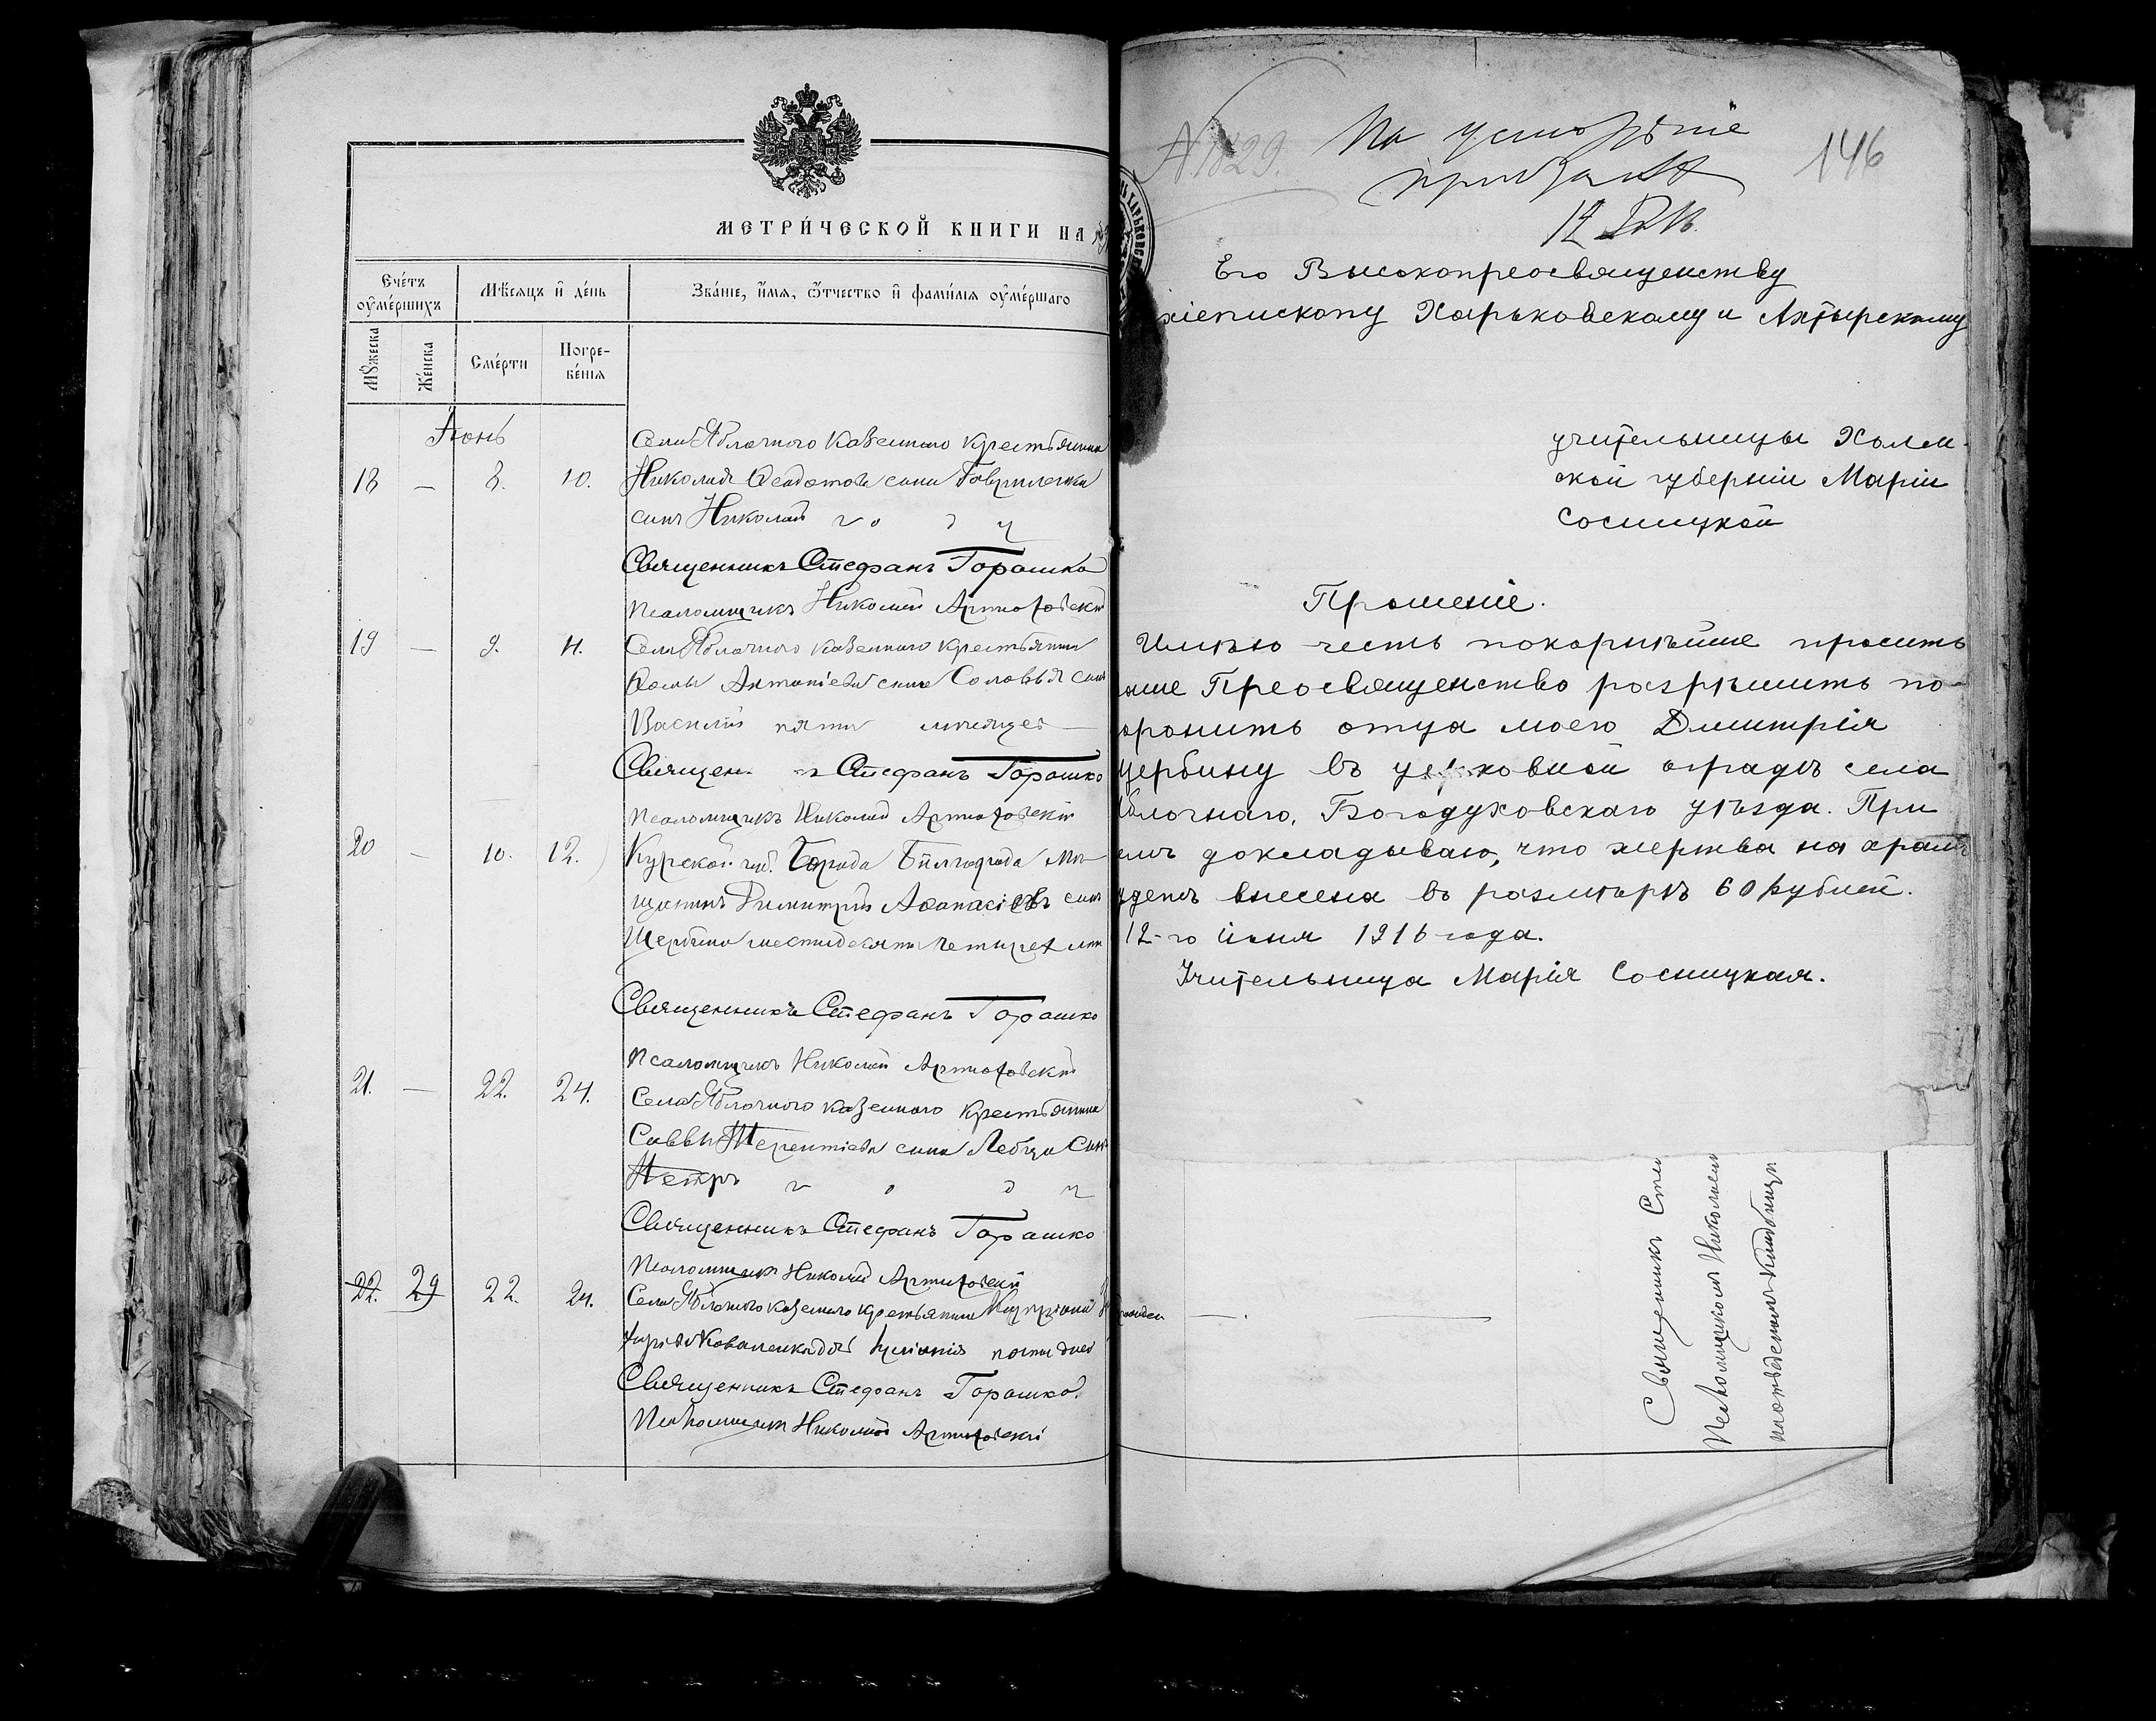 МЕТРИ́ЧЕСКОЙ КНИГИ НА
Сче́тъ оуме́ршихъ
Мѣсяцъ и де́нь
Зва́ніе, и́мя, ѿтчество и фами́лія оуме́ршаго
Мꙋжеска
Же́нска
Сме́рти
Погре-
бе́нія
Іюнь
Села Яблочного казенного крестьянина
18 — 8. 10. Николая Феодотова сына Гавриленка
сынъ Николай
Священникъ Стефанъ Горошко
Псаломщикъ Николай Артюховскій
19 — 9. 11. Села Яблочного казенного крестьянина
Фомы Антоніева сына Соловья сынъ
Василій пяти месяцев
Священ Стефанъ Горошко
Псаломщикъ Николай Артюховскій
20 — 10. 12. Курской губ. Города Белгорода Мѣ-
щанинъ Димитрій Афанасіевъ сынъ
Щербина шестидесяти четырех лет
Священникъ Стефанъ Горошко
Псаломщикъ Николай Артюховскій
21. — 22. 24. Села Яблочного казенного крестьянина
Саввы Терентіева сына сынъ
Петръ
Священникъ Стефанъ Горошко
Псаломщик Николай Артюховскій
22. 29 22. 24. Села Яблочного казенного крестьянина
Коваленка дочь пяти дней
Священникъ Стефанъ Горошко.
Псаломщик Николай Артюховскій
N 1829.
На усмотрѣніе
146
12
Его Высокопреосвященству
хіепископу Харьковскому и Ахтырскому
учительницы Холм-
ской губерніи Маріи
Сосницкой
Прошеніе.
Имѣю честь покорнѣйше просить
аше Преосвященство разрѣшить по-
хоронить отца моего Дмитрія
Щербину въ церковной оградѣ села
Яблочнаго, Богодуховскаго уѣзда. При
емъ докладываю, что жертва на храмъ
удетъ внесена въ размѣрѣ 60 рублей.
12-го іюня 1916 года.
Учительница Марія Сосницкая.
Священникъ Сте
Псаломщикомъ Николаем